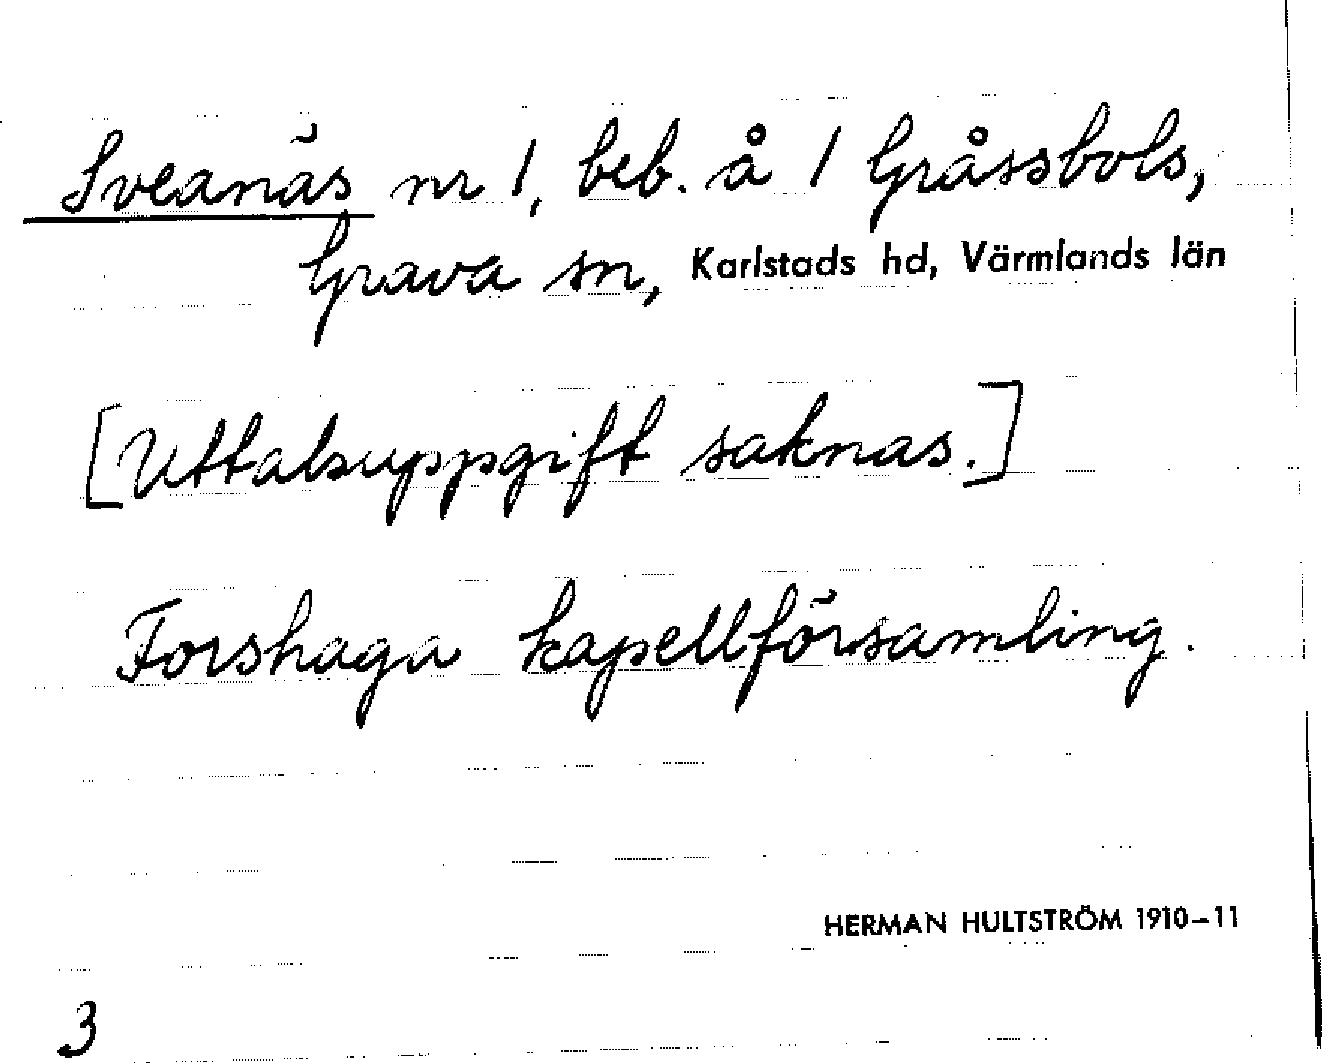 Sveanäs nr 1, beb. å 1 Gråssbols,
Grava sn, Karlstads hd, Värmlands län
[Uttalsuppgift saknas.]
Forshaga kapellförsamling.
HERMAN HULTSTRÖM 1910–11
3